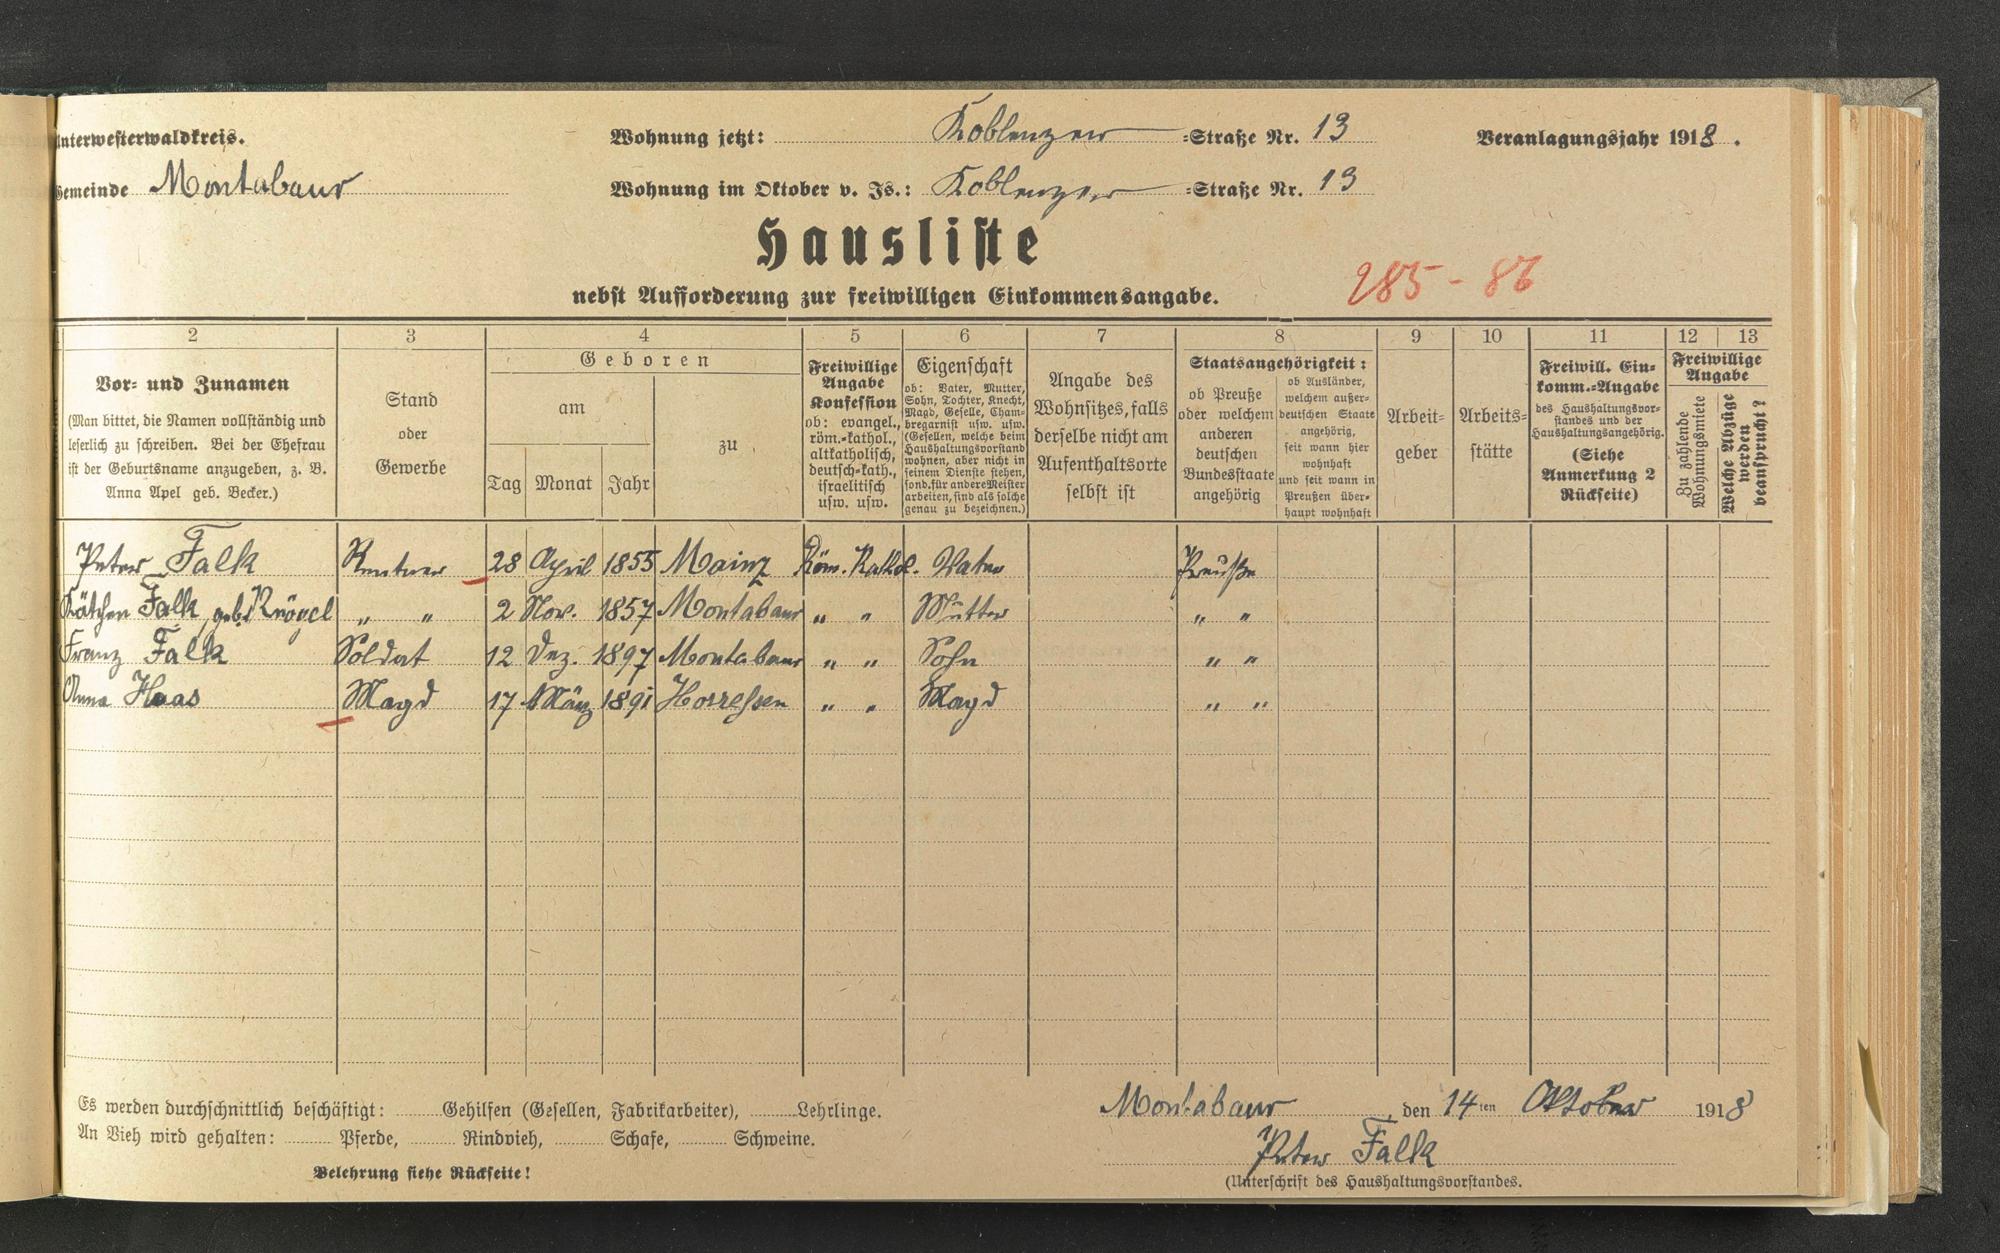 Unterwesterwaldkreis.
Wohnung jetzt: Koblenzer =Straße Nr. 13
Veranlagungsjahr 1918.
Gemeinde Montabaur
Wohnung im Oktober v. Js.: Koblenzer =Straße Nr. 13
Hausliste
nebst Aufforderung zur freiwilligen Einkommensangabe.
285-86
2 3 4 5 6 7 8 9 10 11 12 13
Vor- und Zunamen
(Man bittet, die Namen vollständig und
leserlich zu schreiben. Bei der Ehefrau
ist der Geburtsname anzugeben, z. B.
Anna Apel geb. Becker.)
Stand
oder
Gewerbe
Geboren
am
Tag Monat Jahr
zu
Freiwillige
Angabe
Konfession
ob: evangel.,
röm.-kathol.,
altkatholisch,
deutsch-kath.,
israelitisch
usw. usw.
Eigenschaft
ob: Vater, Mutter,
Sohn, Tochter, Knecht,
Magd, Geselle, Cham-
bregarnist usw. usw.
(Gesellen, welche beim
Haushaltungsvorstand
wohnen, aber nicht in
seinem Dienste stehen,
sond. für andere Meister
arbeiten, sind als solche
genau zu bezeichnen.)
Angabe des
Wohnsitzes, falls
derselbe nicht am
Aufenthaltsorte
selbst ist
Staatsangehörigkeit:
ob Preuße
oder welchem
anderen
deutschen
Bundesstaate
angehörig
ob Ausländer,
welchem außer-
deutschen Staate
angehörig,
seit wann hier
wohnhaft
und seit wann in
Preußen über-
haupt wohnhaft
Arbeit-
geber
Arbeits-
stätte
Freiwill. Ein-
komm.-Angabe
des Haushaltungsvor-
standes und der
Haushaltungsangehörig.
(Siehe
Anmerkung 2
Rückseite)
Freiwillige
Angabe
Zu zahlende
Wohnungsmiete
Welche Abzüge
werden
beansprucht?
Peter Falk Rentner 28 April 1855 Mainz Röm. Kathol. Vater Preuße
Kätchen Falk, geb. Knögel " " 2 Nov. 1857 Montabaur " " Mutter " "
Franz Falk Soldat 12 Dez. 1897 Montabaur " " Sohn " "
Anna Haas Magd 17 März 1891 Horressen " " Magd " "
Es werden durchschnittlich beschäftigt: Gehilfen (Gesellen, Fabrikarbeiter), Lehrlinge.
An Vieh wird gehalten: Pferde, Rindvieh, Schafe, Schweine.
Belehrung siehe Rückseite!
Montabaur, den 14ten Oktober 1918
Peter Falk
(Unterschrift des Haushaltungsvorstandes.